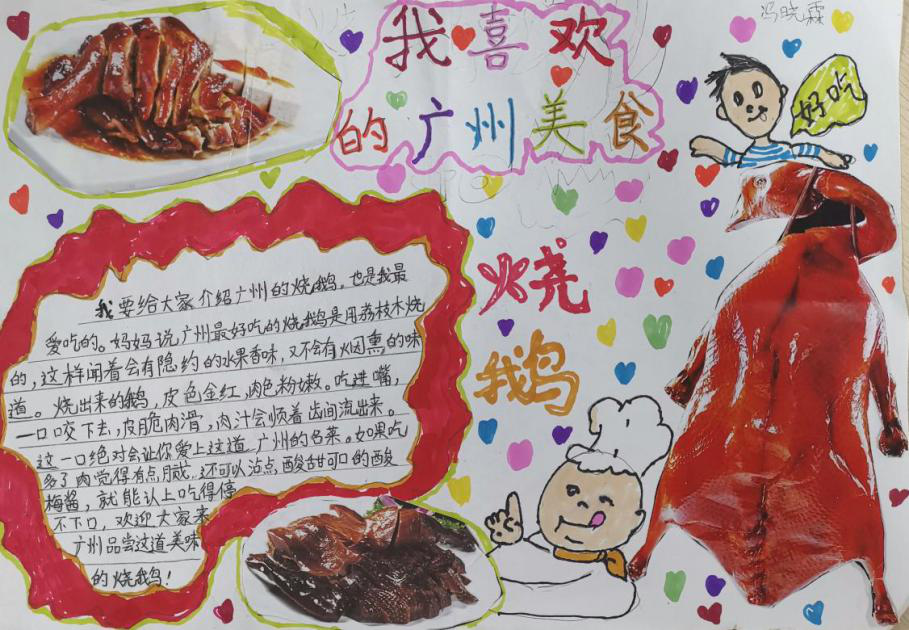 我喜欢
的广州美食
冯晓霖
好吃
烧
鹅
我要给大家介绍广州的烧鹅，也是我最
爱吃的。妈妈说广州最好吃的烧鹅是用荔枝木烧
的，这样闻着会有隐约的水果香味，又不会有烟熏的味
道。烧出来的鹅，皮色金红，肉色粉嫩。吃进嘴，
一口咬下去，皮脆肉滑，肉汁会顺着齿间流出来。
这一口绝对会让你爱上这道广州的名菜。如果吃
多了肉觉得有点腻，还可以沾点酸甜可口的酸
梅酱，就能让上吃得停
不下口，欢迎大家来
广州品尝这道美味
的烧鹅！